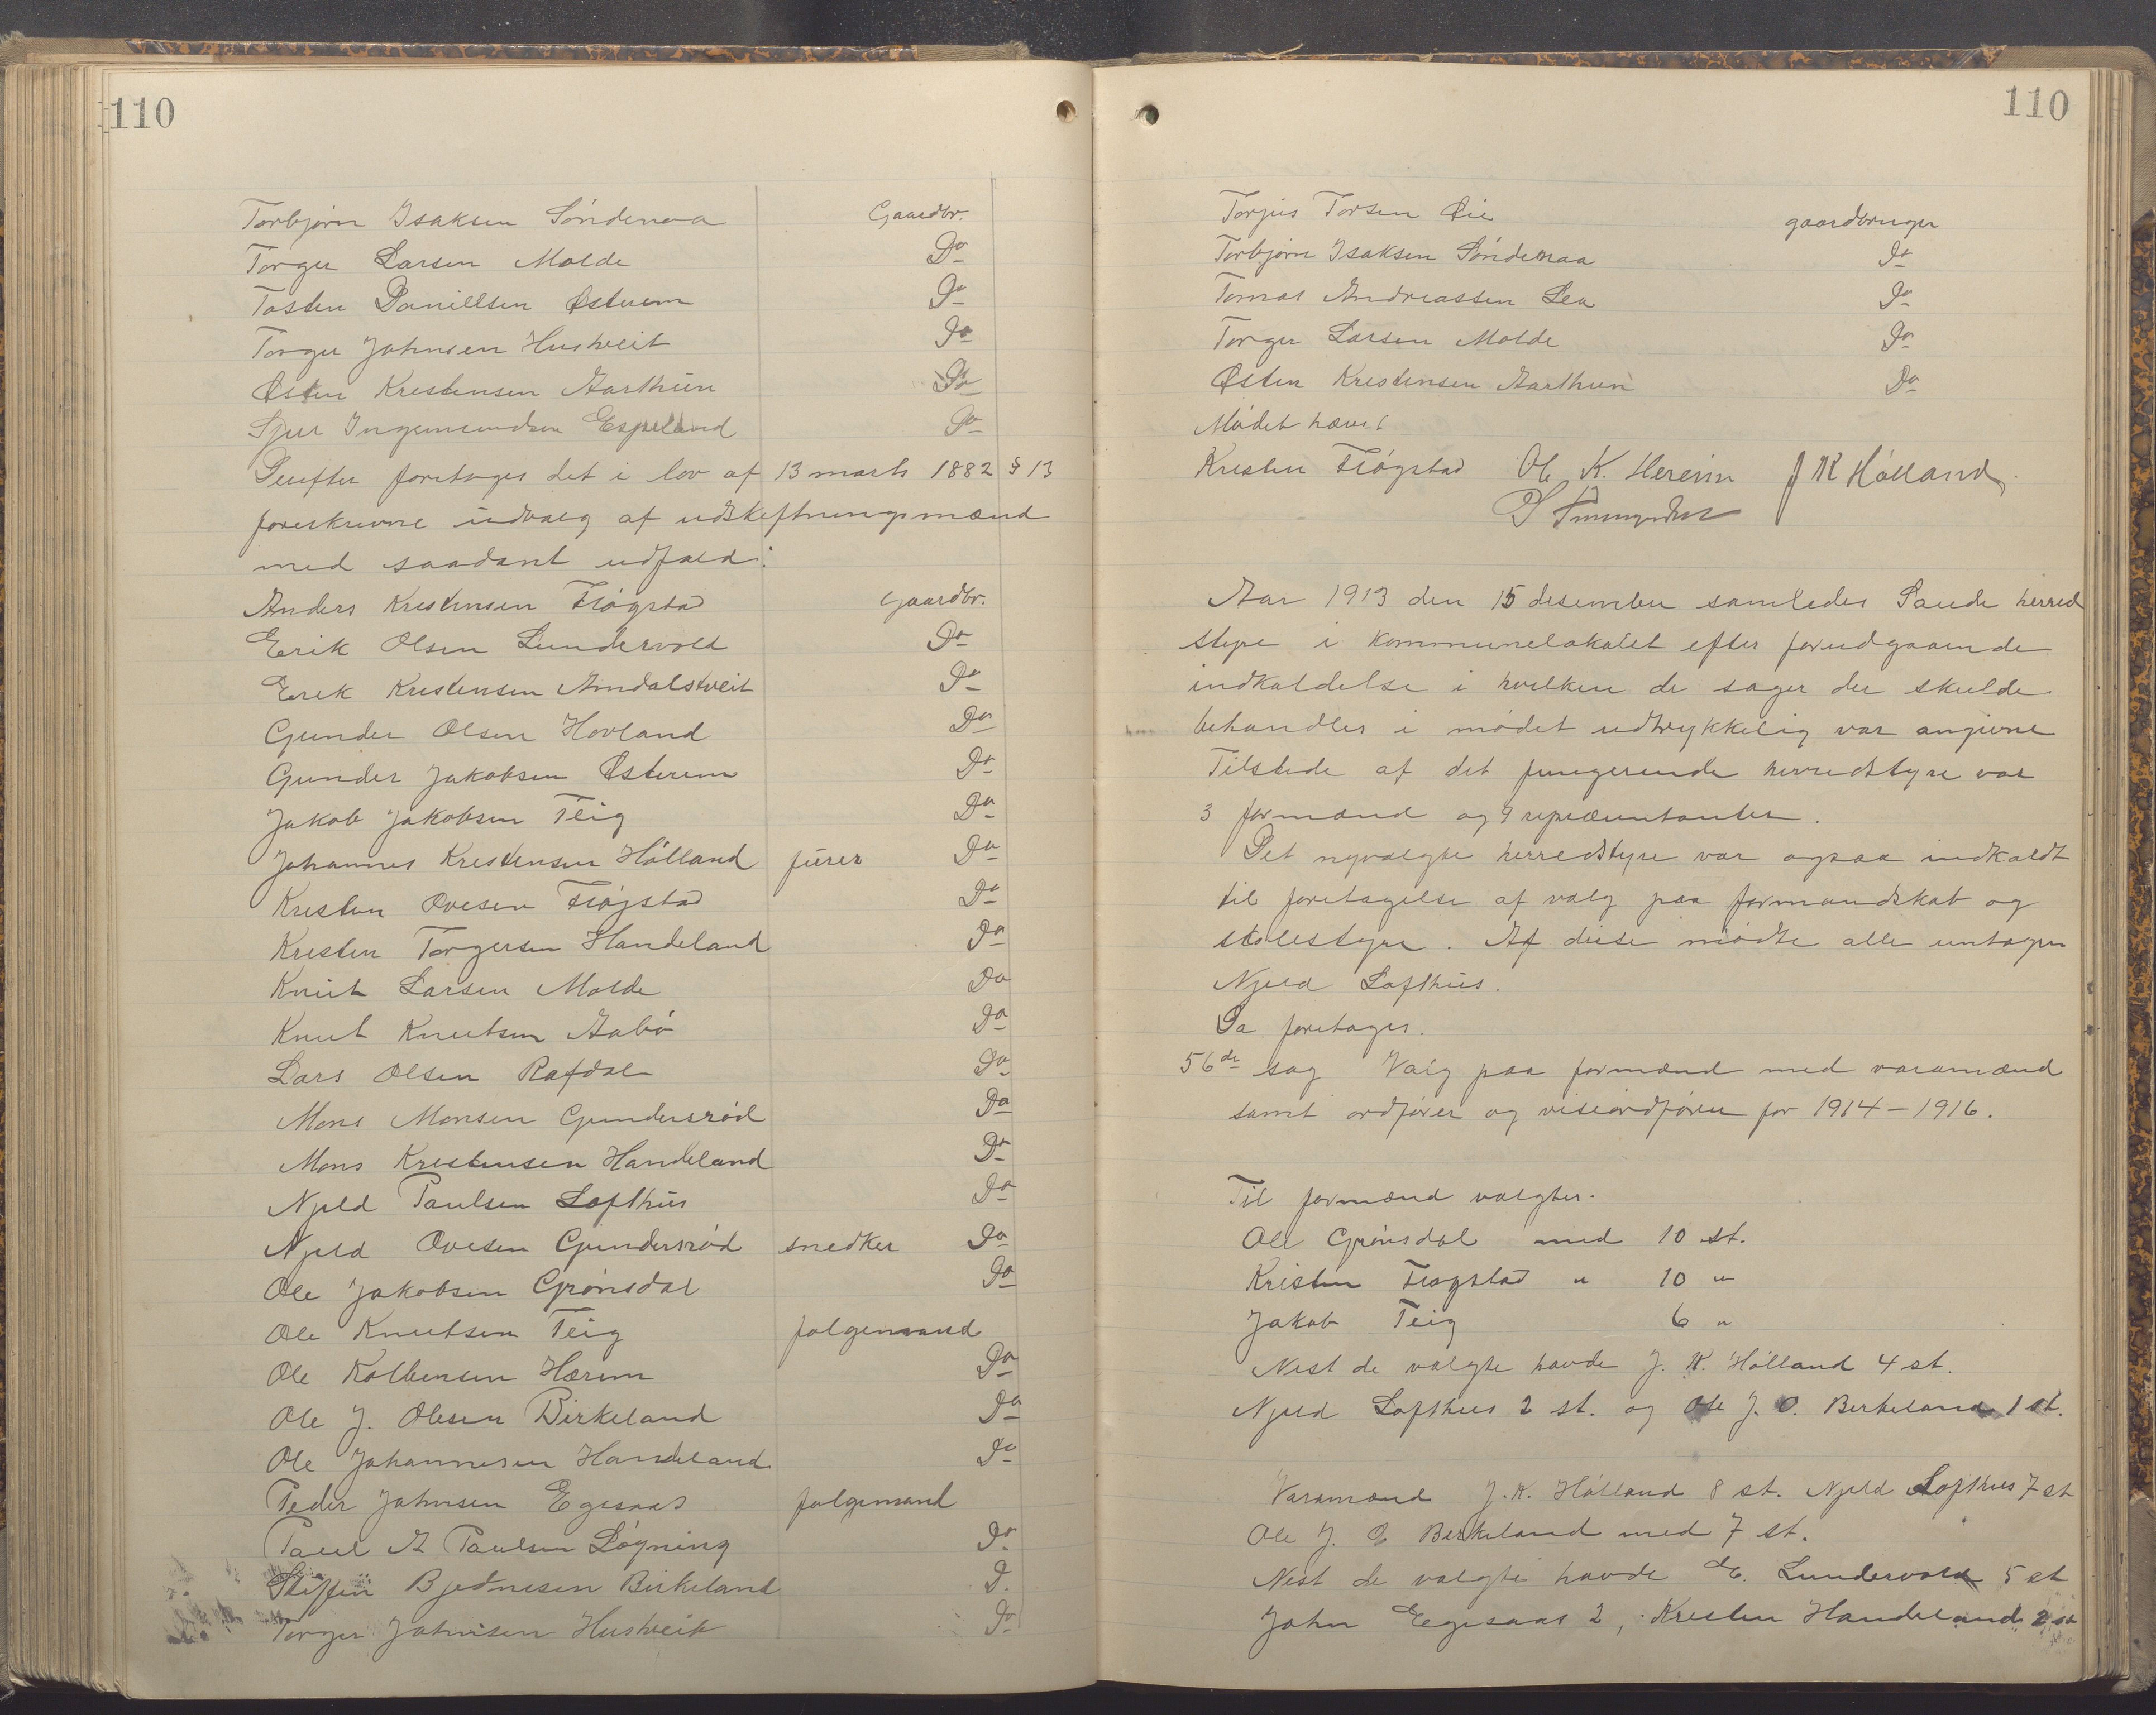 110
Torbjørn Isaksen Søndenaa Gaardbr.
Torger Larsen Molde Do
Tosten Daniellsen Østerem Do
Torger Johnsen Hustveit Do
Østen Krestensen Aarthun Do
Sjur Ingemundsen Espeland Do
Derefter foretoges det i lov af 13 marts 1882 § 13
foreskrevne udvalg af udskiftningsmænd
med saadant udfald:
Anders Krestensen Fløgstad Gaardbr.
Erik Olsen Lundervold Do
Erek Krestensen Amdalstveit Do
Gunder Olsen Hovland Do
Gunder Jakobsen Østerem Do
Jakob Jakobsen Teig Do
Johannes Krestensen Hålland furer Do
Kresten Ovesen Fløgstad Do
Kresten Torgersen Handeland Do
Knut Larsen Molde Do
Knut Knutsen Aabø Do
Lars Olsen Rafdal Do
Mons Monsen Gundersrød Do
Mons Krestensen Handeland Do
Njeld Paulsen Lofthus Do
Njeld Ovesen Gundersrød snedker Do
Ole Jakobsen Grønsdal Do
Ole Knutsen Teig folgemand
Ole Kolbensen Hærem Do
Ole J. Olesen Birkeland Do
Ole Johannesen Handeland Do
Peder Johnsen Egesaas folgemand
Paul A Paulsen Løgning Do
Steffen Bjednesen Birkeland D.
Torger Johnsen Hustveit Do
110
Torjus Torsen Øie gaardbruger
Torbjørn Isaksen Søndenaa Do
Tomas Andreassen Lea Do
Torger Larsen Molde Do
Østen Krestensen Aarthun Do
Mødet hævet
Kresten Fløgstad Ole K. Hereim J K Hålland
Aar 1913 den 15 desember samledes Saude herred
styre i kommunelokalet efter forudgaaende
indkaldelse i hvilken de sager der skulde
behandles i mødet udtrykkelig var angivne
Tilstede af det fungerende herredstyre var
3 formænd og 9 repræsentanter.
Det nyvalgte herredstyre var ogsaa indkaldt
til foretagelse af valg paa formandskab og
skolestyre. Af disse mødte alle untagen
Njeld Lofthus.
Da foretages.
56de sag Valg paa formænd med varamænd
samt ordfører og viseordfører for 1914-1916.
Til formænd valgtes.
Ole Grønsdal med 10 st.
Kristen Fløgstad " 10 "
Jakob Teig 6 "
Nest de valgte havde J. K. Hålland 4 st.
Njeld Lofthus 2 st. og Ole J. O. Berkeland 1 st.
Varamænd J. K. Hålland 8 st. Njeld Lofthus 7 st
Ole J. O Berkeland med 7 st.
Nest de valgte havde E. Lundervold 5 st
John Eegesaas 2, Kresten Handeland 2 st